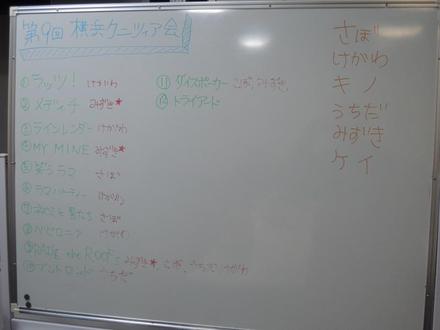 第9回 横浜クニツィア会
① ラッツ! けがわ
② メディチ みずき★
③ ラインレンダー けがわ
④ MY MINE みずき★
⑤ 笑うラマ さぼ
⑥ ラマパーティー けがわ
⑦ たち さぼ
⑧ バビロニア けがわ
⑨ the Roofs みずき★、さぼ、うちだ、けがわ
⑩ うちだ
⑪ ダイスポーカー さぼ、みずき
⑫ トライアード
さぼ
けがわ
キノ
うちだ
みずき
ケイ